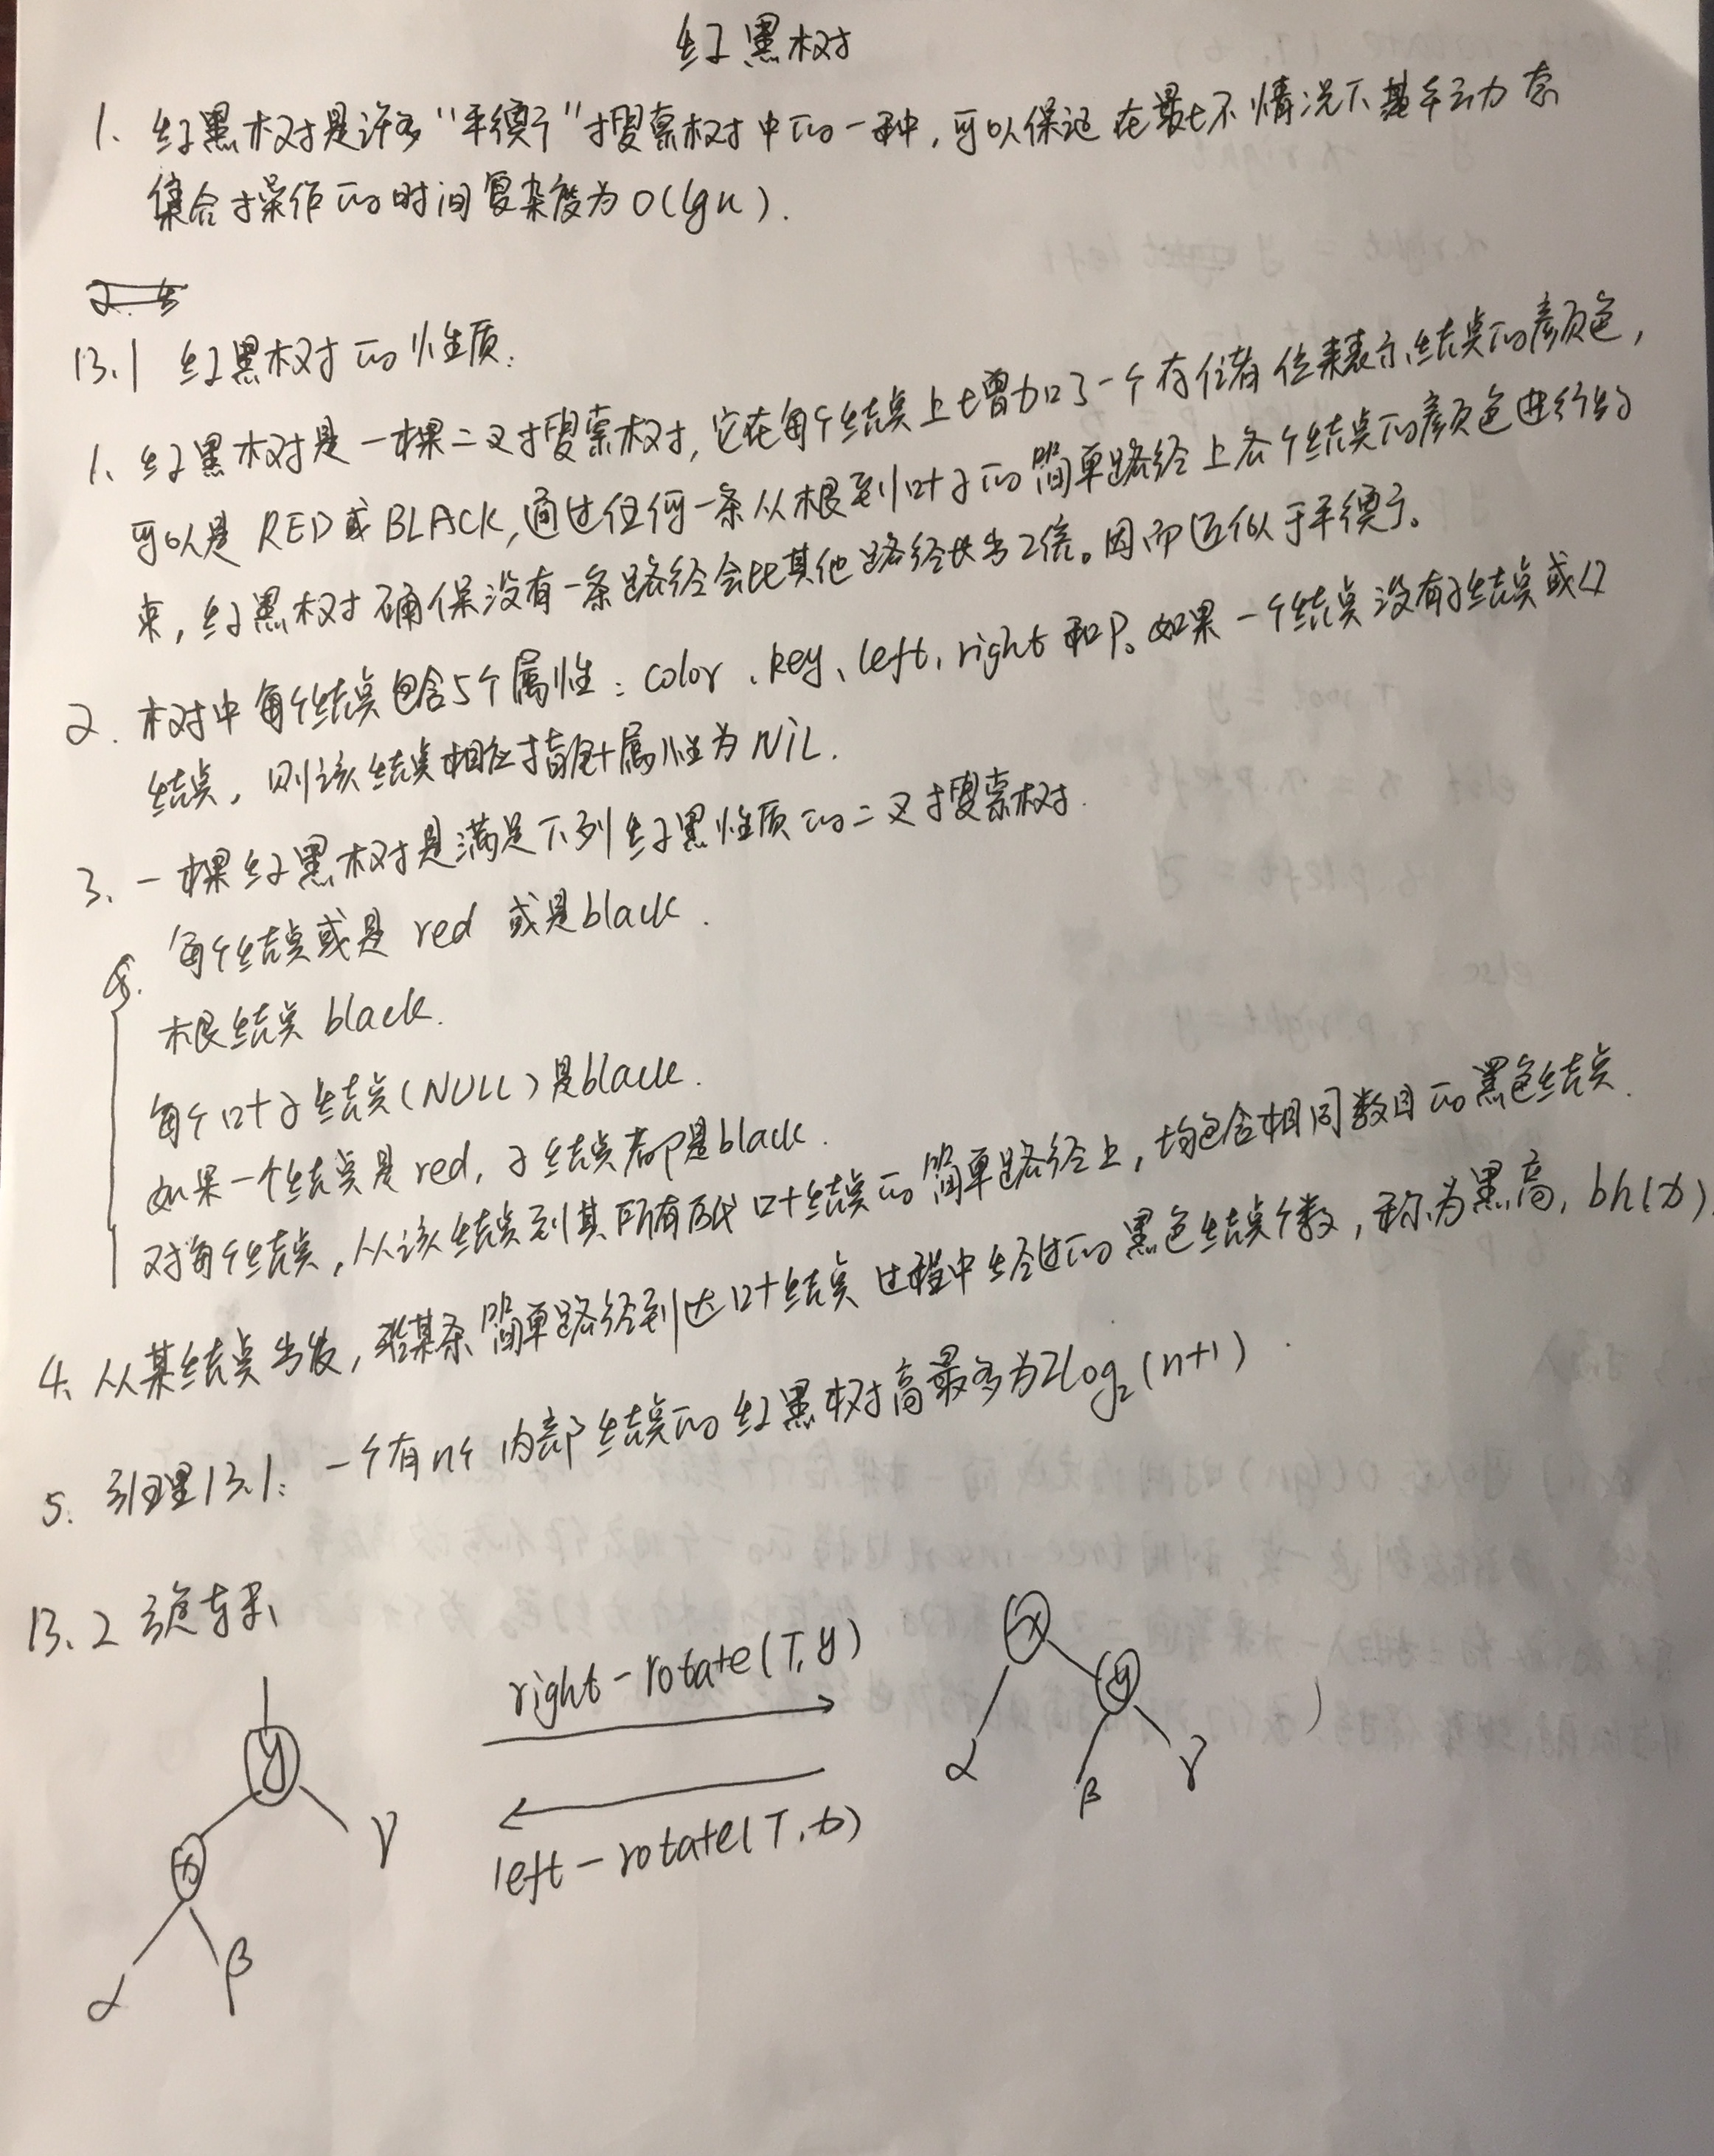 红黑树
1、红黑树是许多“平衡”搜索树中的一种,可以保证在最坏情况下基本动态
集合操作的时间复杂度为O(lgn).
13.1 红黑树的性质:
1、红黑树是一棵二叉搜索树,它在每个结点上增加了一个存储位来表示结点的颜色,
可以是RED或BLACK,通过任何一条从根到叶子的简单路径上各个结点的颜色进行约
束,红黑树确保没有一条路径会比其他路径长出2倍。因而近似于平衡。
2. 树中每个结点包含5个属性:color、key、left、right和p。如果一个结点没有子结点或父
结点,则该结点相应指针属性为NIL.
3、一棵红黑树是满足下列红黑性质的二叉搜索树.
每个结点或是red 或是black.
根结点black.
每个叶子结点(NULL)是black.
如果一个结点是red,子结点都是black.
对每个结点,从该结点到其所有后代叶结点的简单路径上,均包含相同数目的黑色结点.
4、从某结点出发,沿某条简单路径到达叶结点过程中经过的黑色结点个数,称为黑高,bh(x)
5. 引理13.1:一个有n个内部结点的红黑树高最多为2log₂(n+1).
13.2 旋转
right-rotate(T,y)
left-rotate(T,x)
y
x
γ
α
β
x
y
α
β
γ